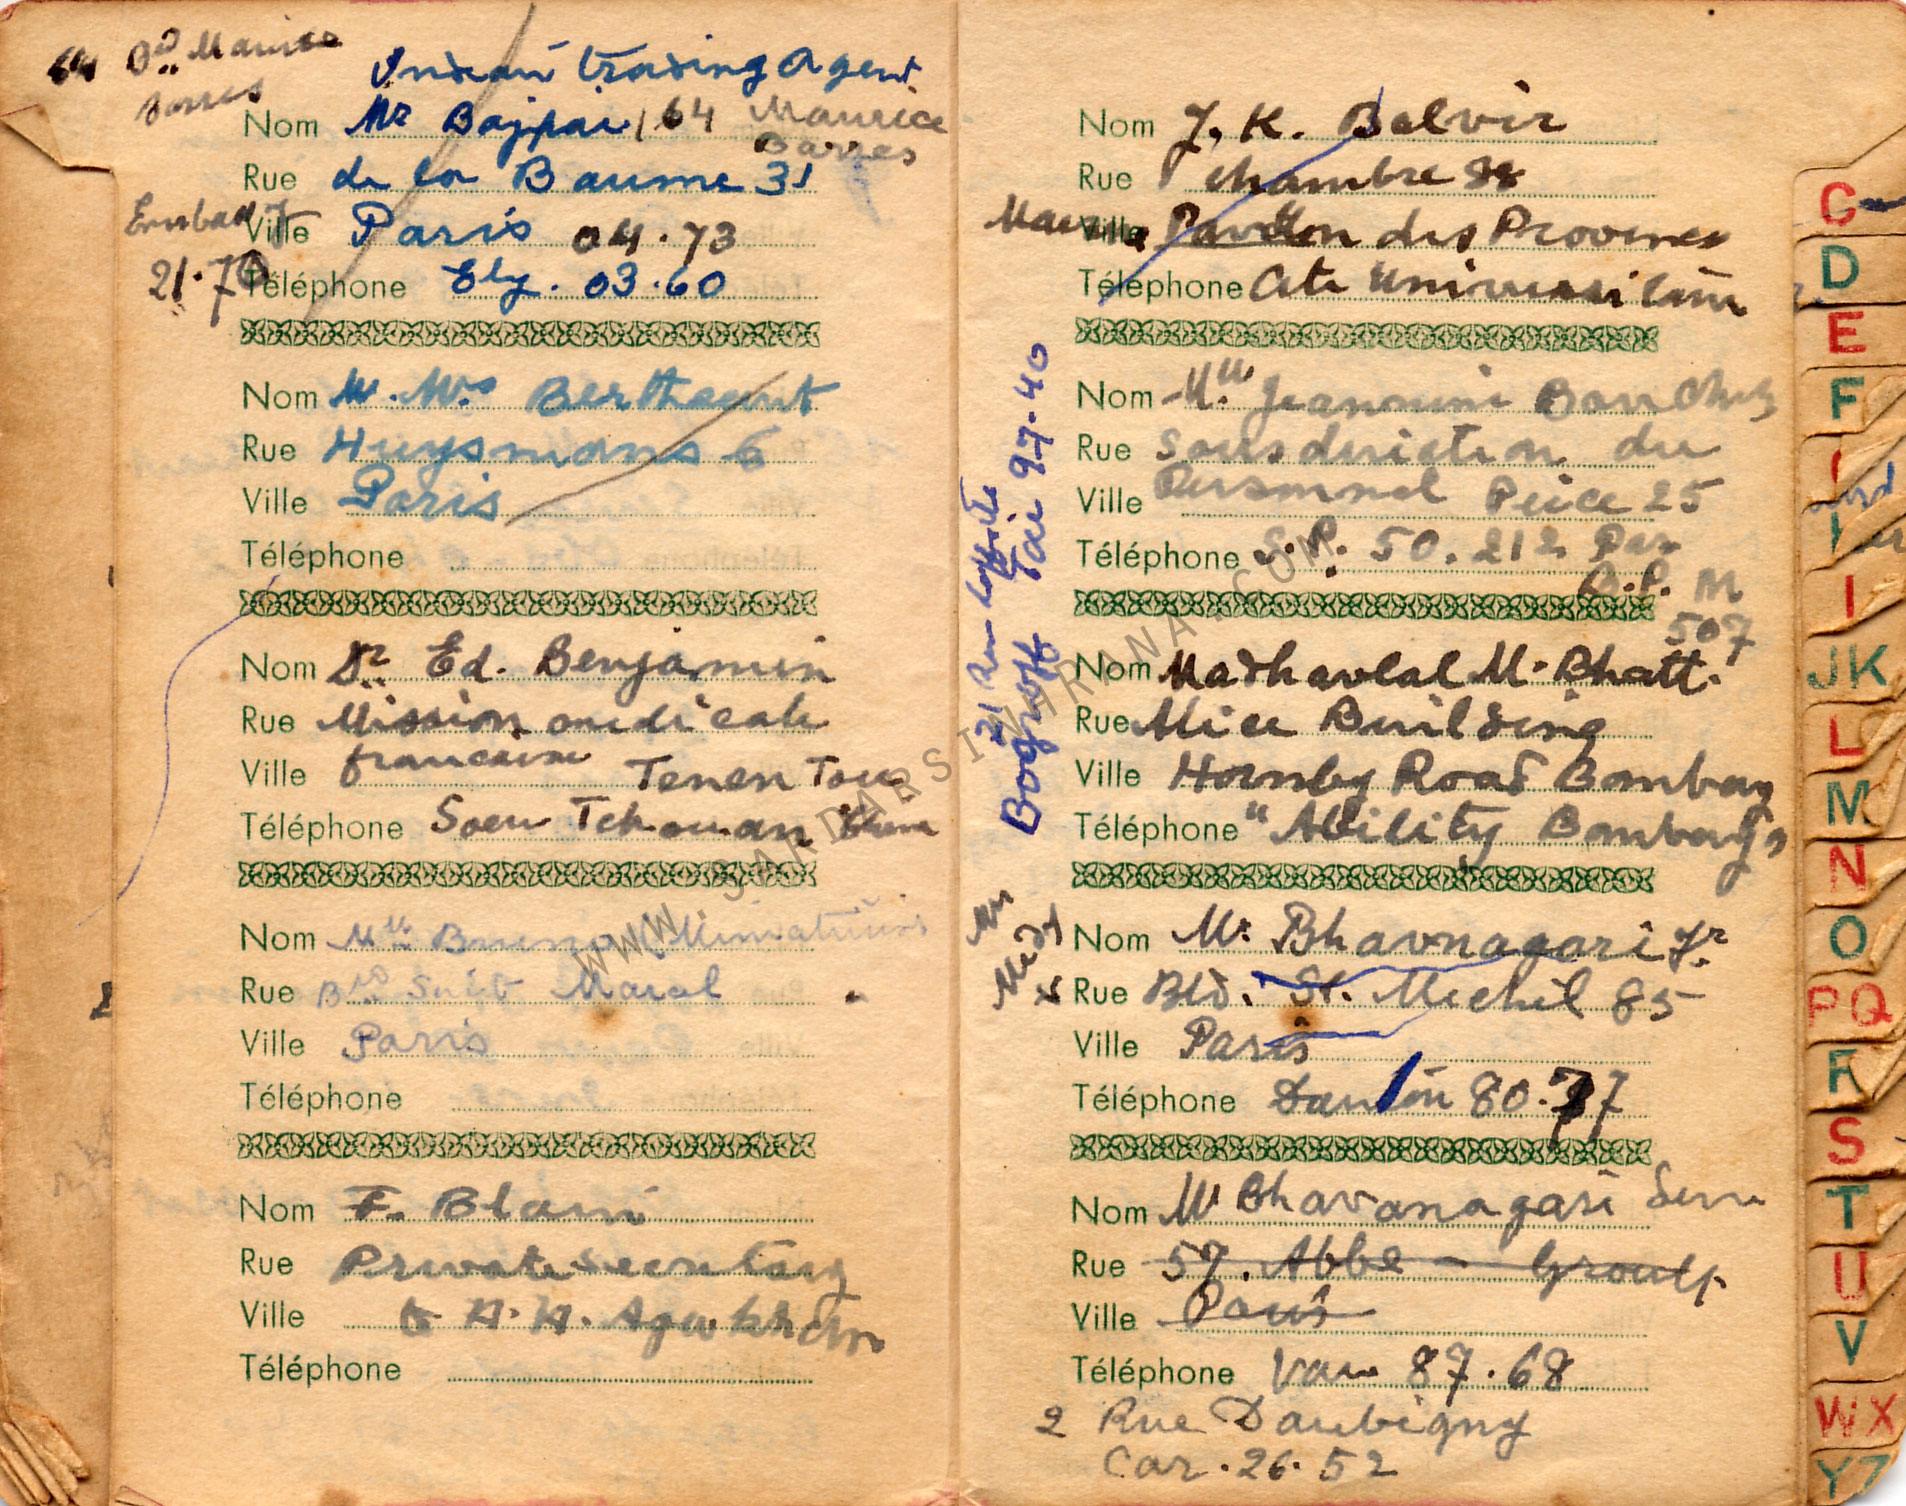 64 Bd Maurice
Barres
Indian Trading Agent
Nom Mr Bajpai 64 Maurice
Barres
Rue de la Baume 31
Embady
Ville Paris 04.73
21.70
Téléphone Ely. 03.60
Nom M. Mrs Berthaut
Rue Huysmans 6
Ville Paris
Téléphone
Nom Dr Ed. Benjamin
Rue Mission medicale
Ville francaise Tenen Tou
Téléphone Soeu Tchouan
Nom Mlle Bruno (Miniaturist
Rue Bld Suit Marcel
Ville Paris
Téléphone
Nom F. Blain
Rue Private secretary
Ville to H. H. Aga Khan
Téléphone
Nom J. K. Balvir
Rue chambre 38
Ville Pavillon des Provinces
Téléphone Cite Universitaire
Nom Mlle Jeannine Bouchez
Rue Sousdirection du
Ville Personnel Peice 25
Téléphone S.P. 50.212 Par
B.P. M
507
21 Rue Laffitte
Bogroff Tai 97.40
Nom Madhavlal M. Bhatt.
Rue Alice Building
Ville Hornby Road Bombay
Téléphone "Ability Bombay"
Nom Mr Bhavnagari Jr
Rue Bld. St. Michel 85
Ville Paris
Téléphone Danton 80.77
Nom Mr Bhavanagari
Rue 57. Abbe - Groult
Ville Paris
Téléphone Vau 87.68
2 Rue Daubigny
Car. 26.52
C
D
E
F
I
JK
L
M
N
O
PQ
R
S
T
U
V
WX
YZ
WWW.SARDARSINHRANA.COM